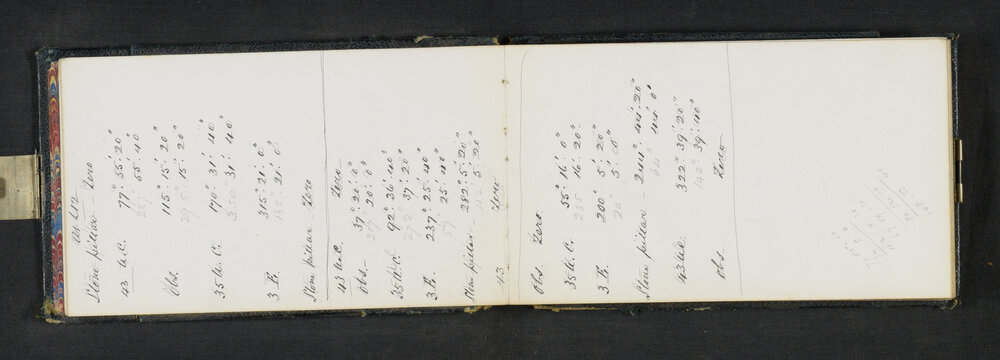 At L12
Stone pillar — Zero
43 U.C. 77° 55' 20"
257 55' 40
Obs. 115° 15' 20"
295° 15' 20
35 U.C. 170° 31' 40"
350 31' 40
3 K. 315° 21' 0"
135 21' 0
Stone pillar Zero
43 U.C. Zero
Obs — 37° 20' 0"
20' 0
35 U.C. 92° 36' 40"
272 37' 20
3 K. 237° 25' 40"
57 25' 40
Stone pillar 282° 5' 20"
102 5' 20
43 Zero
Obs. Zero
35 U.C. 55° 16' 0"
235 16' 20
3 K. 200° 5' 20"
20° 5' 0
Stone pillar — 244° 44' 20"
64° 44' 0
43 U.C. 322° 39' 20"
142° 39' 40
Obs — Zero